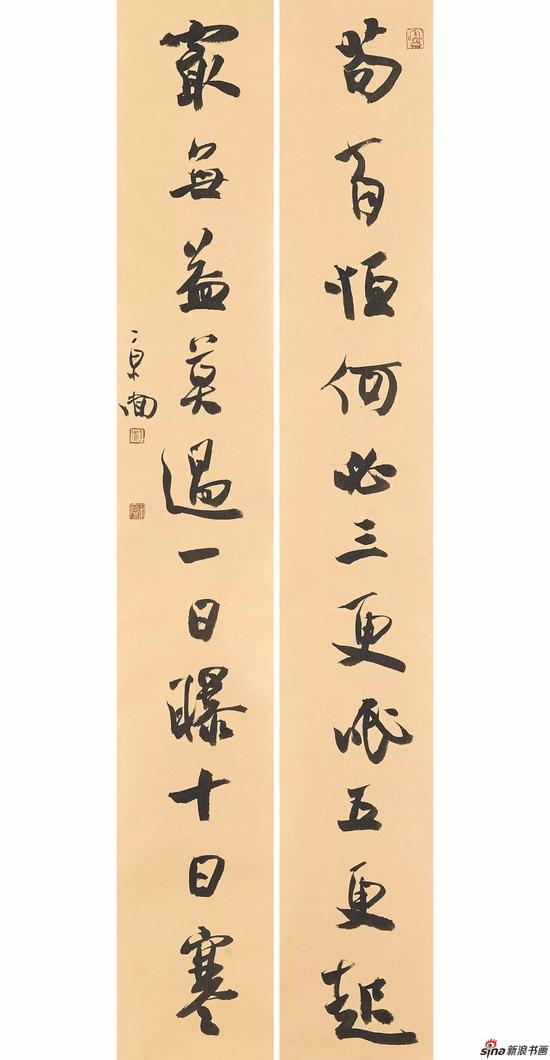 苟有恒何必三更眠五更起
最无益莫过一日曝十日寒
sina新浪书画